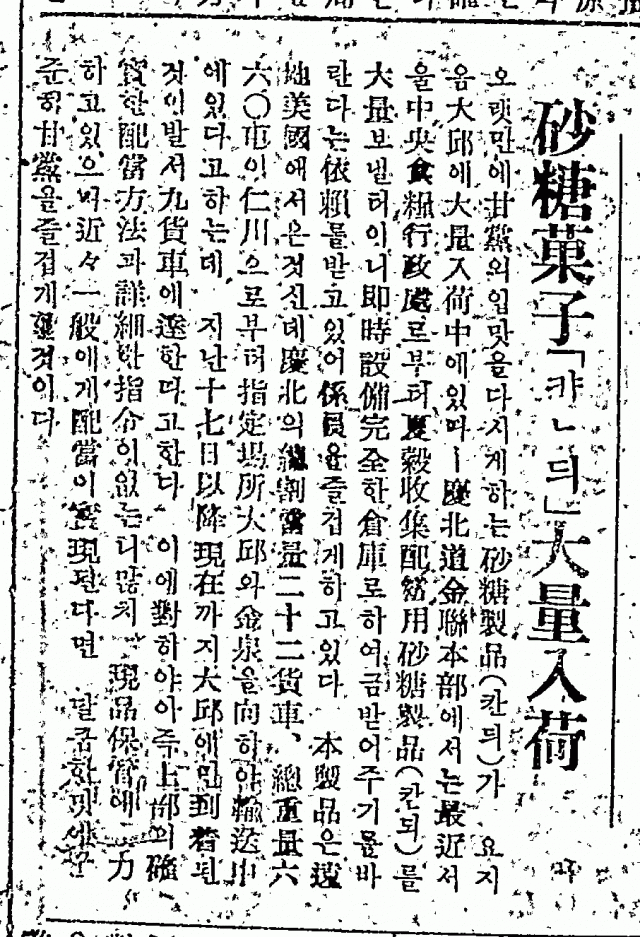 砂糖菓子「캬ᄂ듸」大量入荷
오랫만에甘黨의입맛을다시게하는砂糖製品(칸듸)가 요지
음大邱에大量入荷中에있다ー慶北道金聯本部에서는最近서
울中央食糧行政處로부터夏穀收集配給用砂糖製品(칸듸)를
大量보낼터이니即時設備完全한倉庫로하여금받어주기를바
란다는依賴를받고있어係員을즐겁게하고있다 本製品은遠
地美國에서온것신데慶北의總割當量二十二貨車、總重量六
六〇屯이仁川으로부터指定場所大邱와金泉을向하야輸送中
에있다고하는데 지난十七日以降現在까지大邱에만到着된
것이발서九貨車에達한다고한다 이에對하야아즉上部의確
實한配當方法과詳細한指令이없는니많치 現品保管에 力
하고있으며近々一般에게配當이實現된다면 달콤한맛에굼
준한甘黨을즐겁게할것이다